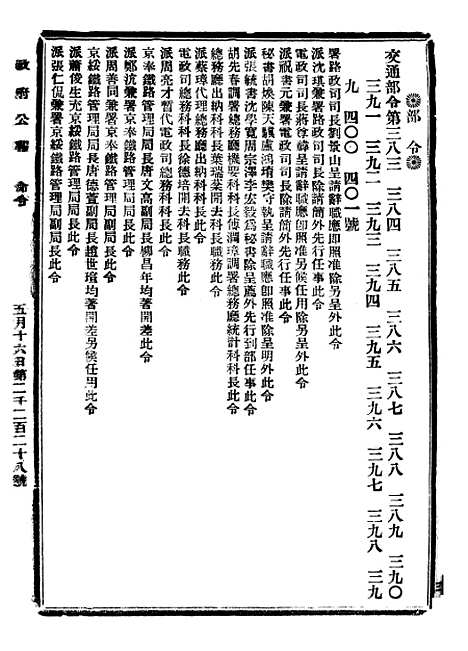 部令
交通部令第三八三 三八四 三八五 三八六 三八七 三八八 三八九 三九〇
三九一 三九二 三九三 三九四 三九五 三九六 三九七 三九八 三九
九 四〇〇 四〇一號
署路政司司長劉景山呈請辭職應即照准除另呈外此令
派沈琪兼署路政司司長除請簡外先行任事此令
電政司司長蔣尊褘呈請辭職應即照准除另候任用除另呈外此令
派祝書元兼署電政司司長除請簡外先行任事此令
秘書胡煥陳天驥盧鴻堉樊守執呈請辭職應即照准除呈明外此令
派張毓書沈學寬周宗澤李宏毅為秘書除呈薦外先行到部任事此令
胡先春調署總務廳機要科科長傅潤璋調署總務廳統計科科長此令
總務廳出納科科長葉瑞棻開去科長職務此令
派蔡璋代理總務廳出納科科長此令
電政司總務科科長徐德培開去科長職務此令
派周亮才暫代電政司總務科科長此令
京奉鐵路管理局局長唐文高副局長楊昌年均著開差此令
派鄭沇兼署京奉鐵路管理局局長此令
派周善同兼署京奉鐵路管理局副局長此令
京綏鐵路管理局局長唐德萱副局長趙世瑄均著開差另候任用此令
派蕭俊生充京綏鐵路管理局局長此令
派張仁侃兼署京綏鐵路管理局副局長此令
政府公報 命令
五月十六日第二千二百二十八號